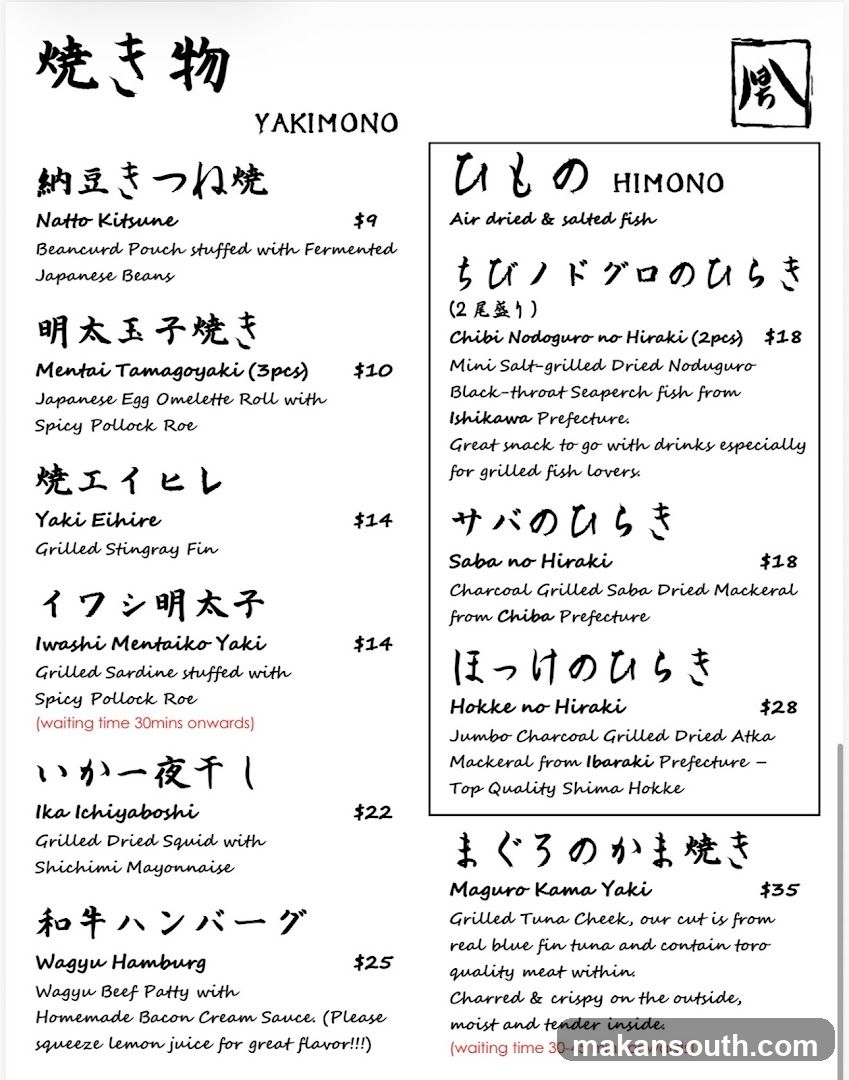 焼き物
YAKIMONO
納豆きつね焼
Natto Kitsune $9
Beancurd Pouch stuffed with Fermented
Japanese Beans
明太玉子焼き
Mentai Tamagoyaki (3pcs) $10
Japanese Egg Omelette Roll with
Spicy Pollock Roe
焼エイヒレ
Yaki Eihire $14
Grilled Stingray Fin
イワシ明太子
Iwashi Mentaiko Yaki $14
Grilled Sardine stuffed with
Spicy Pollock Roe
(waiting time 30mins onwards)
いか一夜干し
Ika Ichiyaboshi $22
Grilled Dried Squid with
Shichimi Mayonnaise
和牛ハンバーグ
Wagyu Hamburg $25
Wagyu Beef Patty with
Homemade Bacon Cream Sauce. (Please
squeeze lemon juice for great flavor!!!)
ひもの HIMONO
Air dried & salted fish
ちびノドグロのひらき
(2尾盛り)
Chibi Nodoguro no Hiraki (2pcs) $18
Mini Salt-grilled Dried Noduguro
Black-throat Seaperch fish from
Ishikawa Prefecture.
Great snack to go with drinks especially
for grilled fish lovers.
サバのひらき
Saba no Hiraki $18
Charcoal Grilled Saba Dried Mackeral
from Chiba Prefecture
ほっけのひらき
Hokke no Hiraki $28
Jumbo Charcoal Grilled Dried Atka
Mackeral from Ibaraki Prefecture –
Top Quality Shima Hokke
まぐろのかま焼き
Maguro Kama Yaki $35
Grilled Tuna Cheek, our cut is from
real blue fin tuna and contain toro
quality meat within.
Charred & crispy on the outside,
moist and tender inside.
(waiting time 30-
makansouth.com